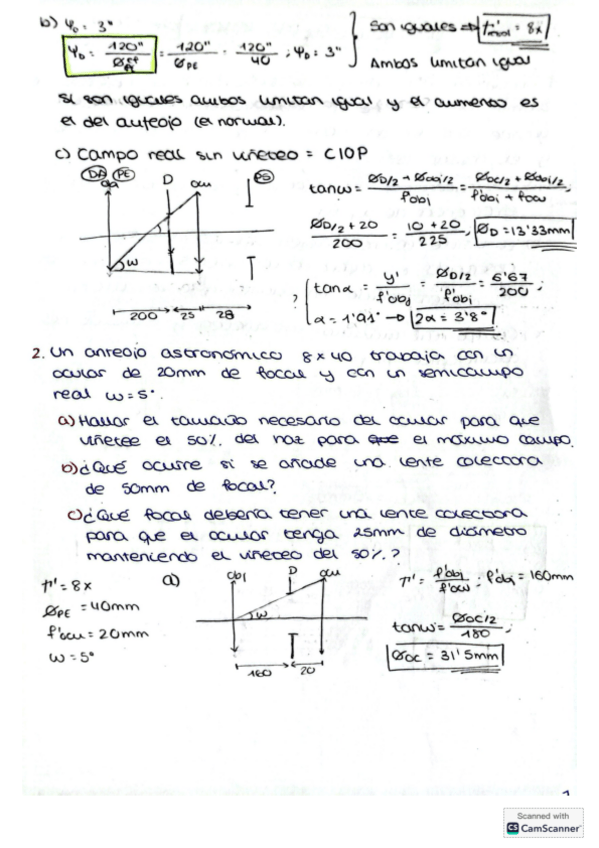 b) φo = 3"
φD = 120" / Øef = 120" / ØPE = 120" / 40 ; φD = 3"
Son iguales → Γ' = 8x
Ambos limitan igual
Si son iguales ambos limitan igual y el aumento es
el del anteojo (el normal).
c) Campo real sin viñeteo = CIOP
DA PE D ocu PS
w
200 25 28
tanw = ØD/2 + Øobj/2 / f'obj = Øoc/2 + Øobj/2 / f'obj + f'ocu ;
ØD/2 + 20 / 200 = 10 + 20 / 225 ; ØD = 13'33mm
? tanα = y' / f'obj = ØD/2 / f'obj = 6'67 / 200 ;
α = 1'91° → 2α = 3'8°
2. Un anteojo astronómico 8 x 40 trabaja con un
ocular de 20mm de focal y con un semicampo
real w = 5°.
a) Hallar el tamaño necesario del ocular para que
viñetee el 50% del haz para el máximo campo.
b) ¿Qué ocurre si se añade una lente colectora
de 50mm de focal?
c) ¿Qué focal debería tener una lente colectora
para que el ocular tenga 25mm de diámetro
manteniendo el viñeteo del 50%?
Γ' = 8x
ØPE = 40mm
f'ocu = 20mm
w = 5°
a)
obj D ocu
w
160 20
Γ' = f'obj / f'ocu ; f'obj = 160mm
tanw = Øoc/2 / 180 ;
Øoc = 31'5mm
1
Scanned with
CS CamScanner